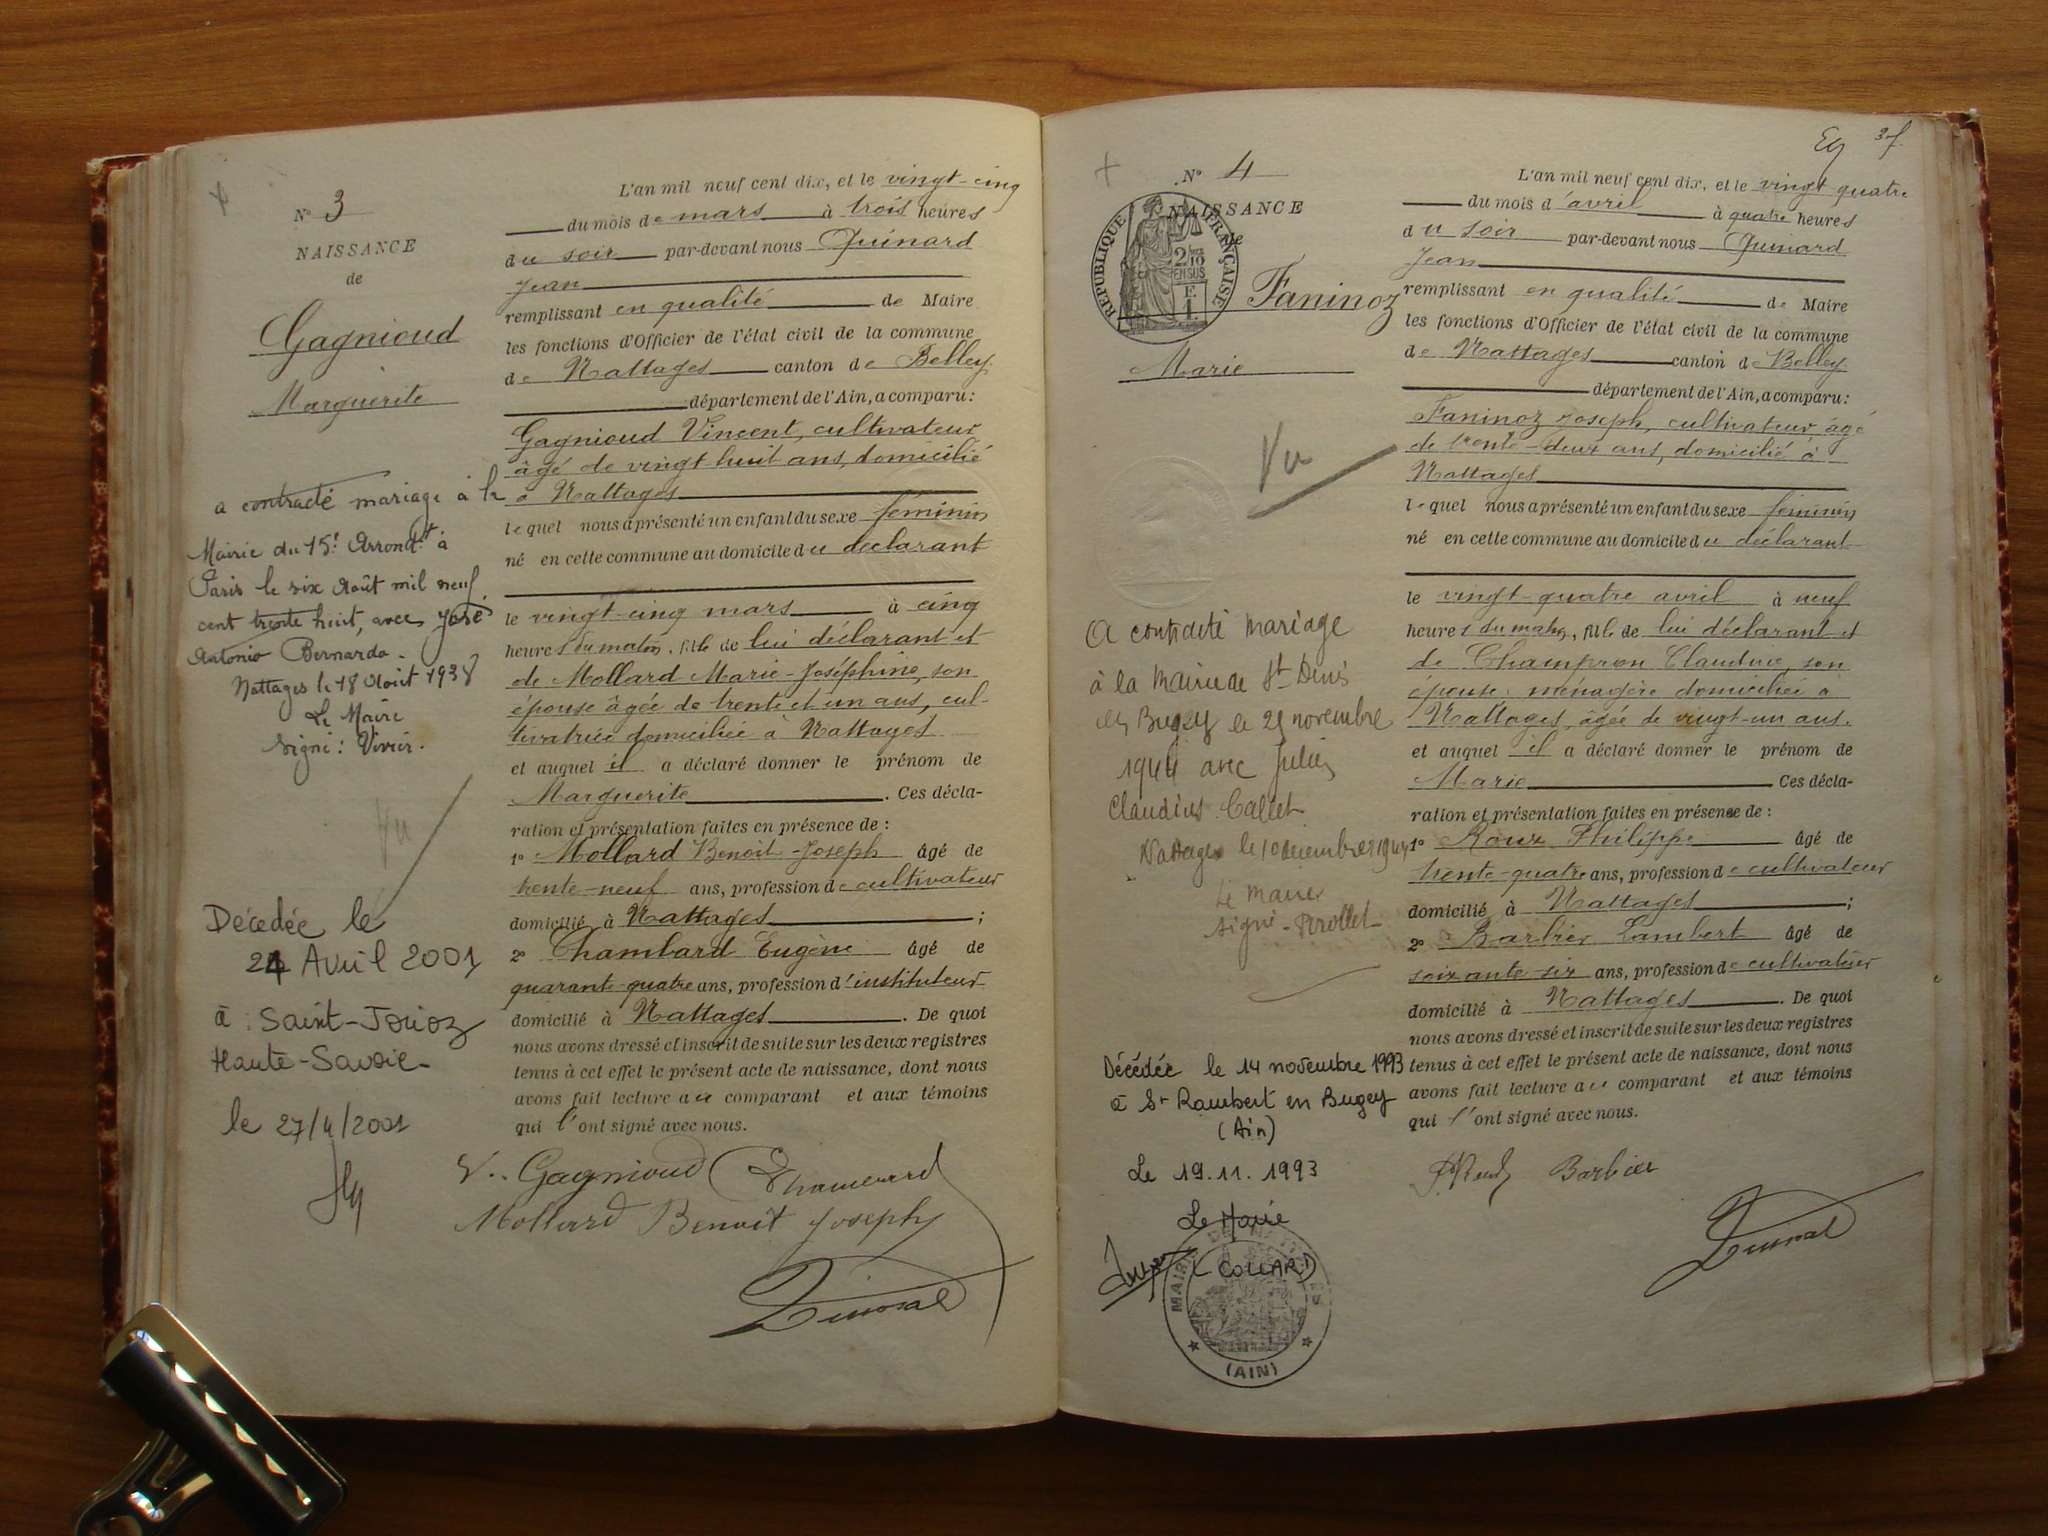 N° 3
NAISSANCE
de
Gagnioud
Marguerite
a contracté mariage à la
Mairie du 15e Arrondt à
Paris le six Août mil neuf
cent trente huit, avec José
Antonio Bernardo.
Nattages le 18 Août 1938
Le Maire
signé : Vivier.
Vu
Décédée le
24 Avril 2001
à : Saint-Jorioz
Haute-Savoie
le 27/4/2001
L'an mil neuf cent dix, et le vingt-cinq
du mois de mars à trois heures
du soir par-devant nous Quinard
Jean
remplissant en qualité de Maire
les fonctions d'Officier de l'état civil de la commune
de Nattages canton de Belley
département de l'Ain, a comparu :
Gagnioud Vincent, cultivateur
âgé de vingt huit ans, domicilié
à Nattages
lequel nous a présenté un enfant du sexe féminin
né en cette commune au domicile du déclarant
le vingt-cinq mars à cinq
heures du matin, fille de lui déclarant et
de Mollard Marie-Joséphine, son
épouse âgée de trente et un ans, cul-
tivatrice domiciliée à Nattages
et auquel il a déclaré donner le prénom de
Marguerite. Ces décla-
ration et présentation faites en présence de :
1° Mollard Benoit-Joseph âgé de
trente-neuf ans, profession de cultivateur
domicilié à Nattages ;
2° Chambard Eugène âgé de
quarante-quatre ans, profession d'instituteur
domicilié à Nattages. De quoi
nous avons dressé et inscrit de suite sur les deux registres
tenus à cet effet le présent acte de naissance, dont nous
avons fait lecture au comparant et aux témoins
qui l'ont signé avec nous.
V. Gagnioud Chambard
Mollard Benoit Joseph
Quinard
3
N° 4
NAISSANCE
de
RÉPUBLIQUE FRANÇAISE
2/10
EN SUS
F.
1.
Faninoz
Marie
Vu
A contracté mariage
à la Mairie de St Denis
en Bugey le 25 novembre
1944 avec Julien
Claudius Callet
Nattages le 10 décembre 1944
Le Maire
signé - Perollet
Décédée le 14 novembre 1993
à St Rambert en Bugey
(Ain)
Le 19.11.1993
Le Maire
(COLLARD)
MAIRIE DE
(AIN)
L'an mil neuf cent dix, et le vingt quatre
du mois d'avril à quatre heures
du soir par-devant nous Quinard
Jean
remplissant en qualité de Maire
les fonctions d'Officier de l'état civil de la commune
de Nattages canton de Belley
département de l'Ain, a comparu :
Faninoz Joseph, cultivateur, âgé
de trente-deux ans, domicilié à
Nattages
lequel nous a présenté un enfant du sexe féminin
né en cette commune au domicile du déclarant
le vingt-quatre avril à neuf
heures du matin, fille de lui déclarant et
de Champion Claudine, son
épouse, ménagère domiciliée à
Nattages, âgée de vingt-un ans.
et auquel il a déclaré donner le prénom de
Marie Ces décla-
ration et présentation faites en présence de :
1° Roux Philippe âgé de
trente-quatre ans, profession de cultivateur
domicilié à Nattages ;
2° Barbier Lambert âgé de
soixante-six ans, profession de cultivateur
domicilié à Nattages. De quoi
nous avons dressé et inscrit de suite sur les deux registres
tenus à cet effet le présent acte de naissance, dont nous
avons fait lecture au comparant et aux témoins
qui l'ont signé avec nous.
P. Roux Barbier
Quinard